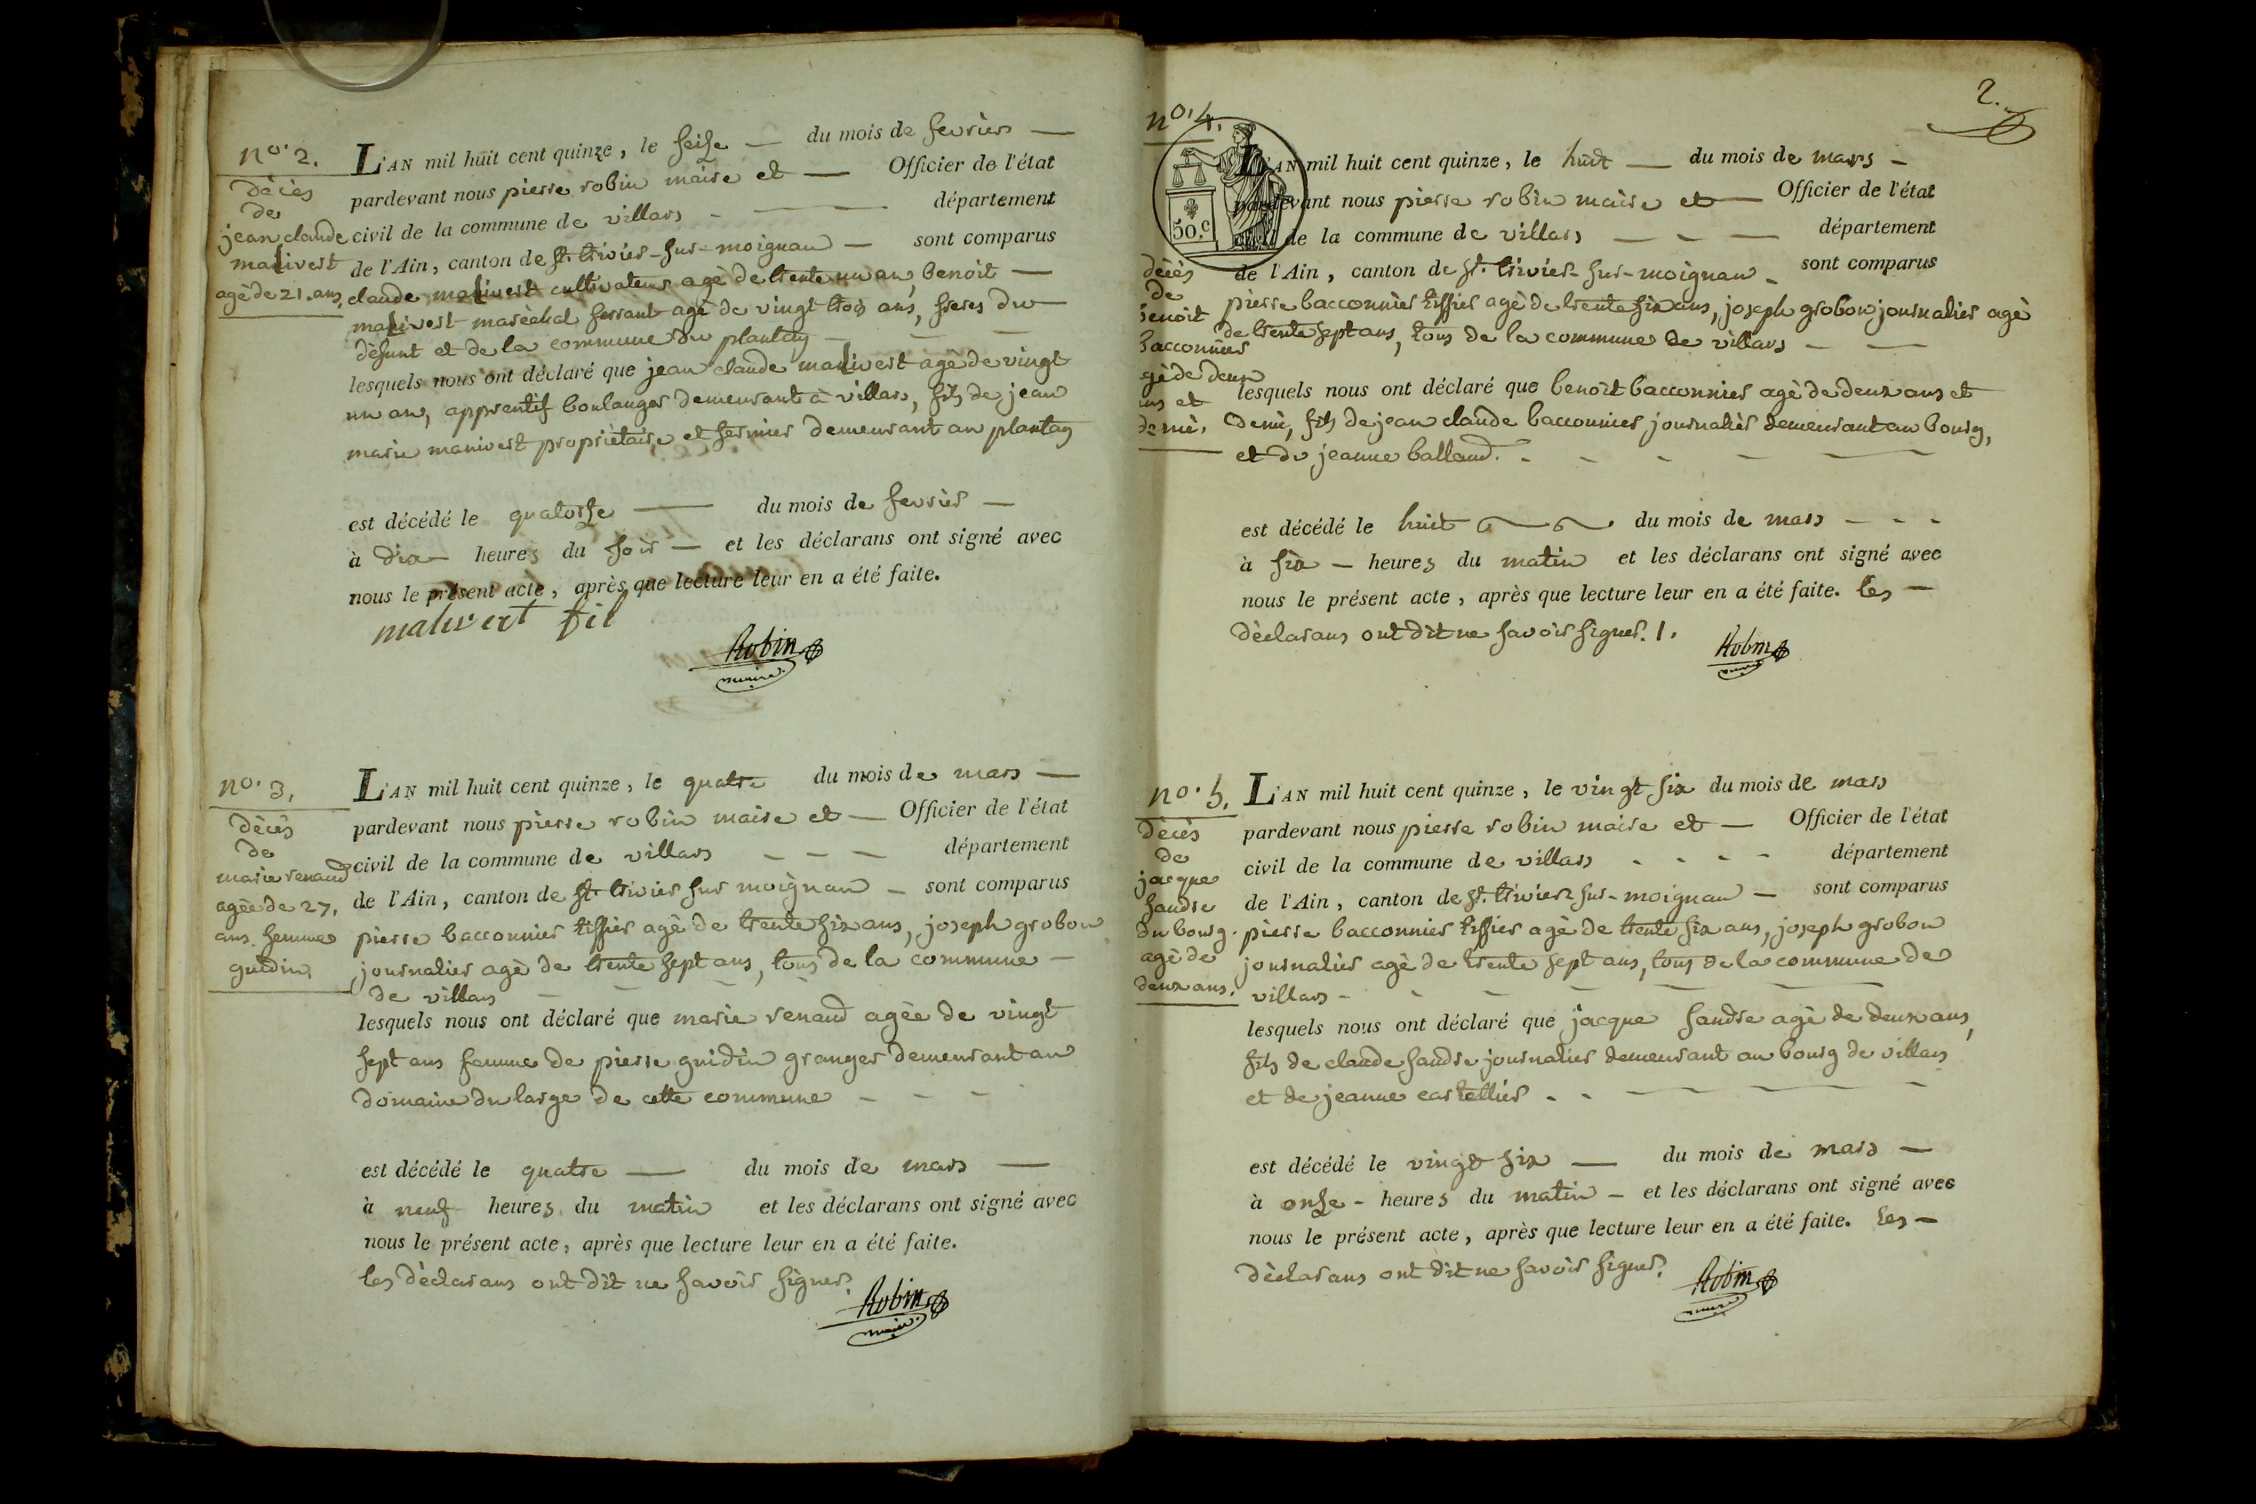 no. 2.
décès
de
jean claude
malivert
agé de 21. ans.
L'AN mil huit cent quinze, le seise — du mois de fevrier —
pardevant nous pierre robin maire et — Officier de l'état
civil de la commune de villars - — département
de l'Ain, canton de st. trivier-sur-moignan — sont comparus
claude malivert cultivateur agé de trente un an, benoit —
malivert maréchal ferrant agé de vingt trois ans, freres du
défunt et de la commune du plantay — — —
lesquels nous ont déclaré que jean claude malivert agé de vingt
un an, apprentif boulanger demeurant à villars, fils de jean
marie manivert propriétaire et fermier demeurant au plantay
est décédé le quatorse — du mois de fevrier —
à dix — heures du soir — et les déclarans ont signé avec
nous le présent acte, après que lecture leur en a été faite.
malivert fil
Robin
maire
no. 3.
décès
de
marie renaud
agée de 27.
ans. femme
guidin.
L'AN mil huit cent quinze, le quatre du mois de mars —
pardevant nous pierre robin maire et — Officier de l'état
civil de la commune de villars — — — département
de l'Ain, canton de st. trivier sur moignan — sont comparus
pierre bacconnier tissier agé de trente six ans, joseph grobon
journalier agé de trente sept ans, tous de la commune —
de villars — — — —
lesquels nous ont déclaré que marie renaud agée de vingt
sept ans femme de pierre guidin granger demeurant au
domaine du large de cette commune - - -
est décédé le quatre — du mois de mars —
à neuf heures du matin et les déclarans ont signé avec
nous le présent acte, après que lecture leur en a été faite.
les déclarans ont dit ne savoir signer.
Robin
maire.
2.
no. 4.
50.c
décès
de
benoit
bacconnier
agé de deux
ans et
demi.
L'AN mil huit cent quinze, le huit — du mois de mars —
pardevant nous pierre robin maire et — Officier de l'état
civil de la commune de villars — — — département
de l'Ain, canton de st. trivier-sur-moignan - sont comparus
pierre bacconnier tissier agé de trente six ans, joseph grobon journalier agé
de trente sept ans, tous de la commune de villars — —
lesquels nous ont déclaré que benoit bacconnier agé de deux ans et
demi, fils de jean claude bacconnier journalier demeurant au bourg,
et de jeanne balland. - - - — —
est décédé le huit du mois de mars - - -
à six — heures du matin et les déclarans ont signé avec
nous le présent acte, après que lecture leur en a été faite. les —
déclarans ont dit ne savoir signer. /.
Robin
maire
no. 5.
décès
de
jacque
sandre
du bourg.
agé de
deux ans.
L'AN mil huit cent quinze, le vingt six du mois de mars
pardevant nous pierre robin maire et — Officier de l'état
civil de la commune de villars - - - - département
de l'Ain, canton de st. trivier sur-moignan — sont comparus
pierre bacconnier tissier agé de trente six ans, joseph grobon
journalier agé de trente sept ans, tous de la commune de
villars - - — — — —
lesquels nous ont déclaré que jacque sandre agé de deux ans,
fils de claude sandre journalier demeurant au bourg de villars
et de jeanne cartellier - - — — — -
est décédé le vingt six — du mois de mars —
à onse - heures du matin — et les déclarans ont signé avec
nous le présent acte, après que lecture leur en a été faite. les —
déclarans ont dit ne savoir signer.
Robin
maire